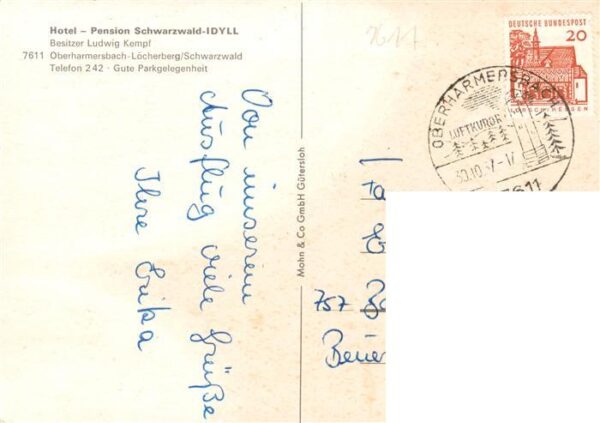 Hotel – Pension Schwarzwald-IDYLL
Besitzer Ludwig Kempf
7611 Oberharmersbach-Löcherberg/Schwarzwald
Telefon 242 · Gute Parkgelegenheit
Von unserem
Ausflug viele Grüße
Ihre Erika
Mohn & Co GmbH Gütersloh
7617
DEUTSCHE BUNDESPOST
20
LORSCH/HESSEN
OBERHARMERSBACH
LUFTKURORT
7611
757